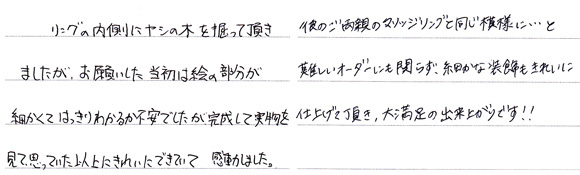 リングの内側にヤシの木を掘って頂き
ましたが、お願いした当初は絵の部分が
細かくてはっきりわかるか不安でしたが完成して実物を
見て思っていた以上にきれいにできていて 感動しました。
彼のご両親のマリッジリングと同じ模様に…と
難しいオーダーにも関らず、細かな装飾もきれいに
仕上げて頂き、大満足の出来上がりです!!